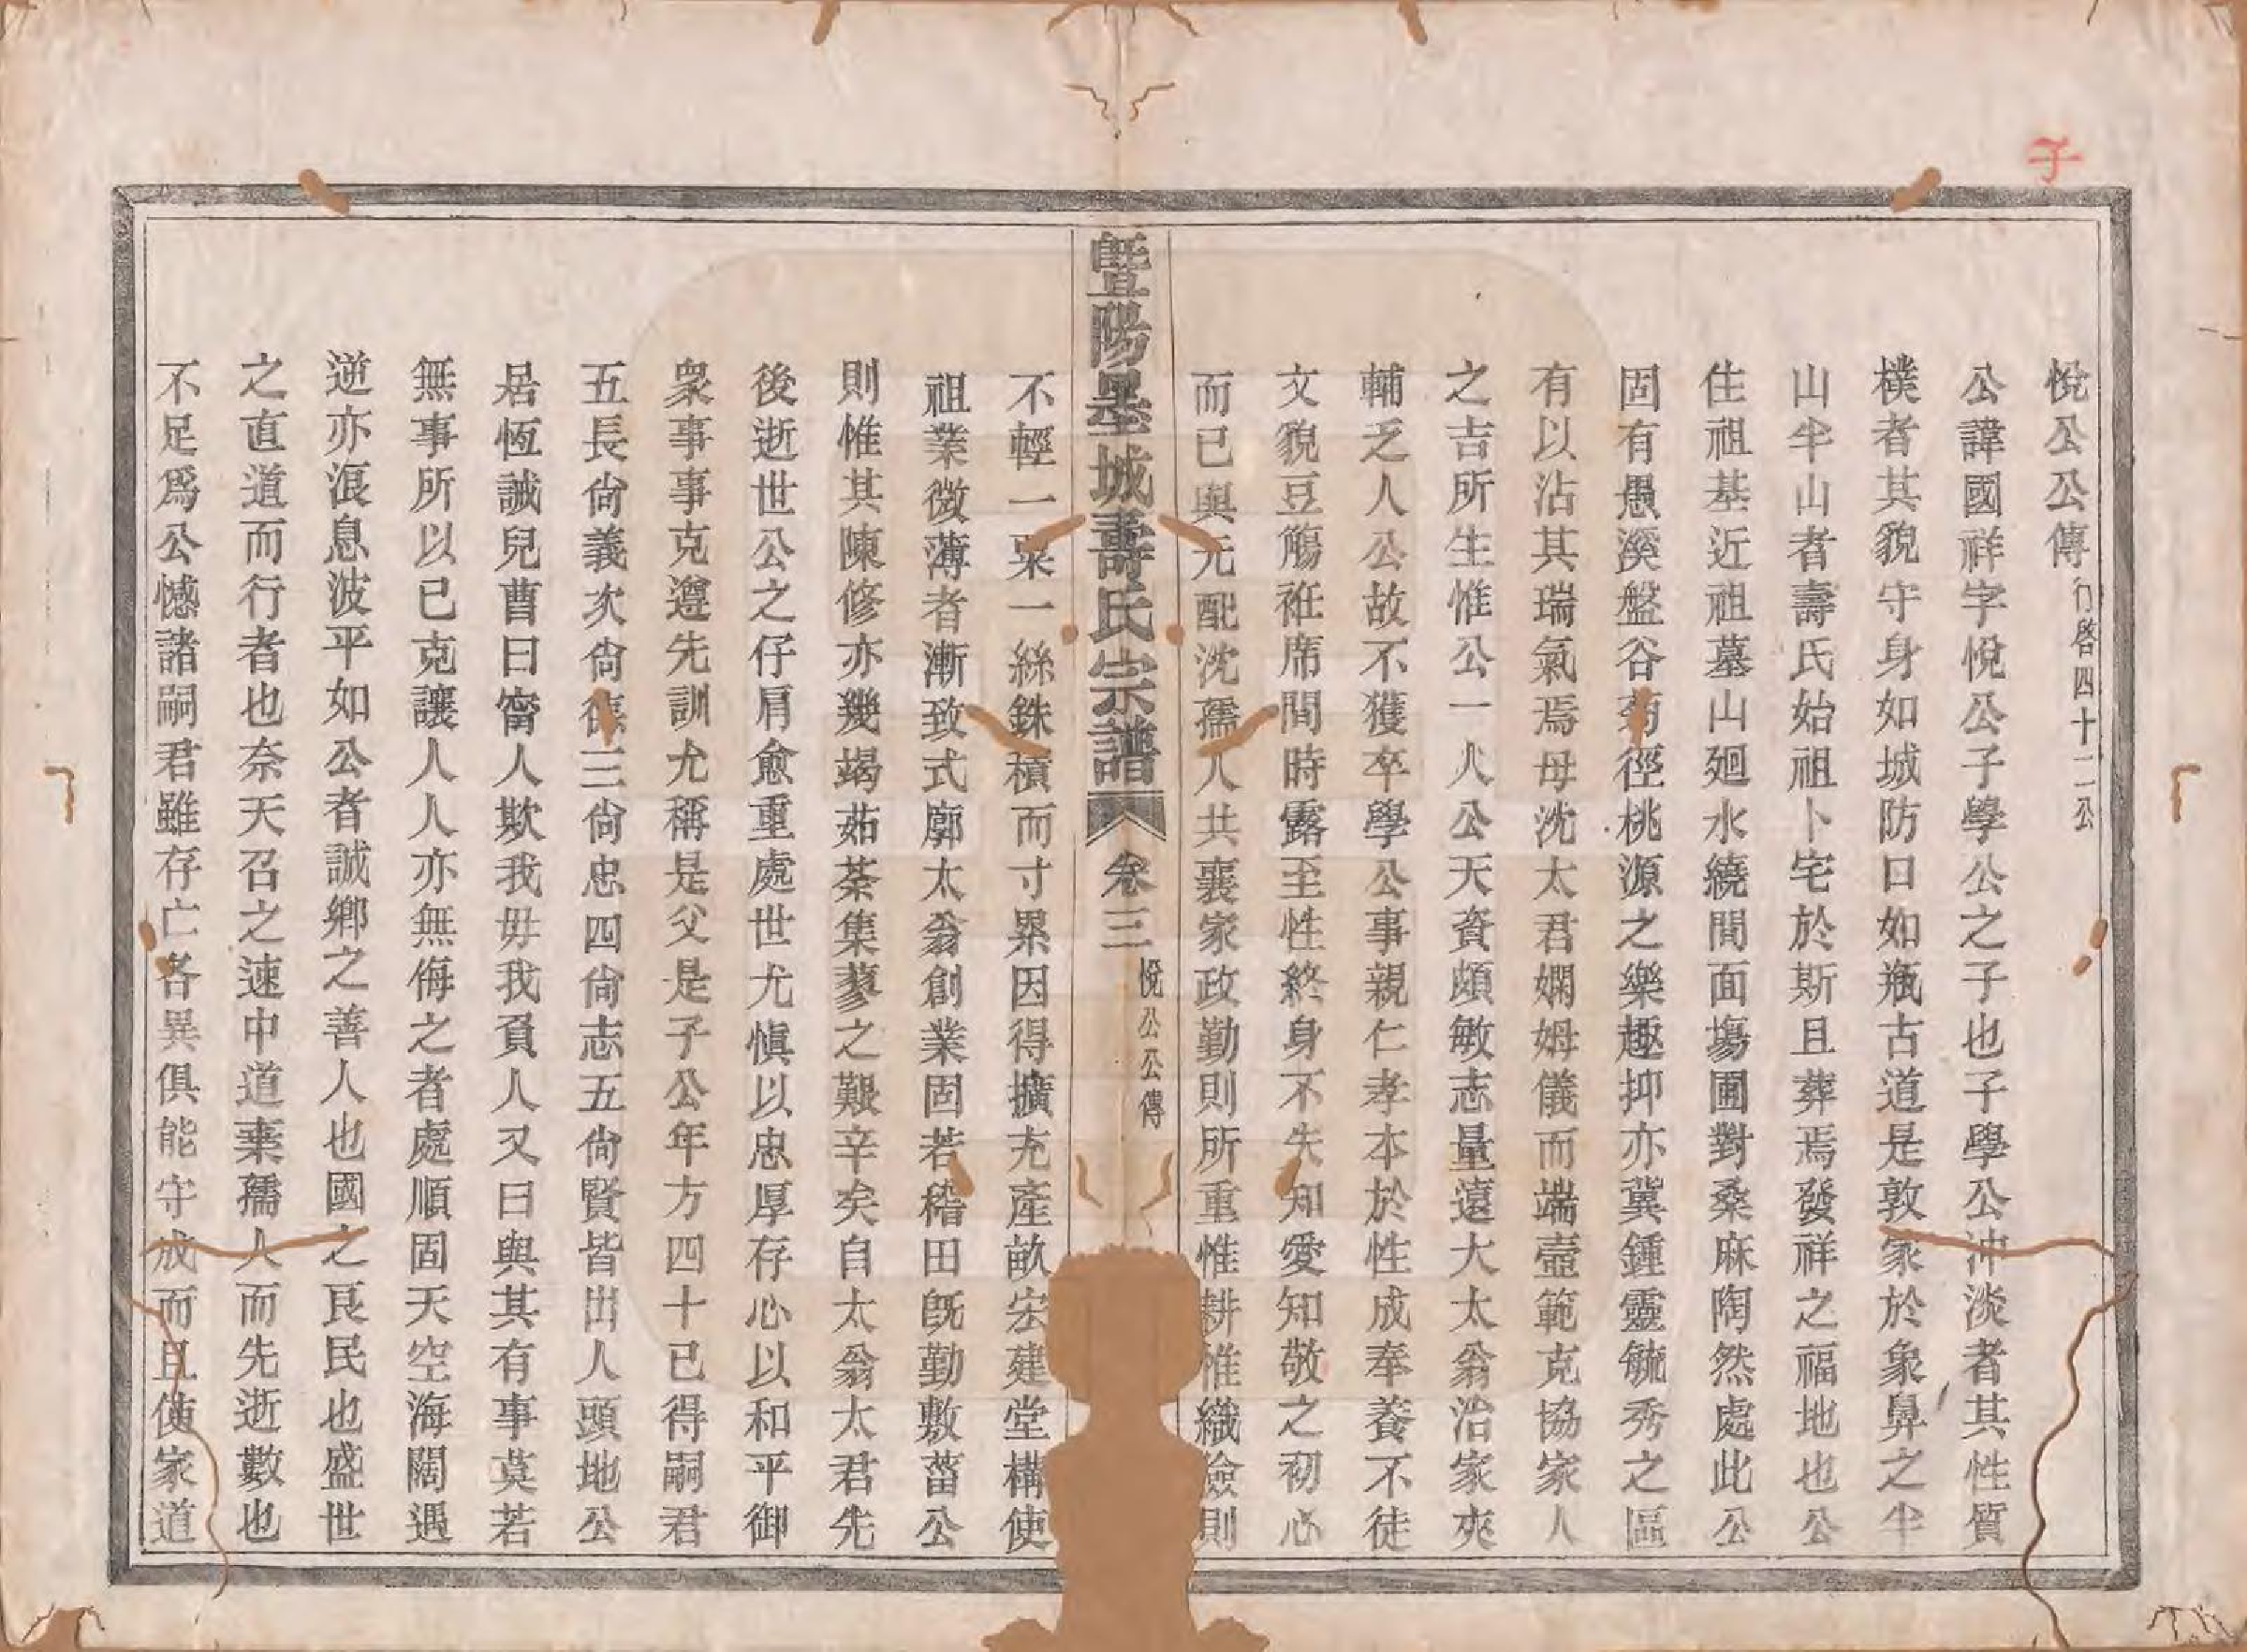 子
悅公公傳行啓四十二公
公諱國祥字悅公子學公之子也子學公沖淡者其性質
樸者其貌守身如城防口如瓶古道是敦家於象鼻之半
山半山者壽氏始祖卜宅於斯且葬焉發祥之福地也公
住祖基近祖墓山廻水繞間面場圃對桑麻陶然處此公
固有愚溪盤谷菊徑桃源之樂趣抑亦冀鍾靈毓秀之區
有以沾其瑞氣焉母沈太君嫻姆儀而端壼範克協家人
之吉所生惟公一人公天資頗敏志量遠大太翁治家夾
輔乏人公故不獲卒學公事親仁孝本於性成奉養不徒
文貌豆觴袵席間時露至性終身不失知愛知敬之初心
而已與元配沈孺人共襄家政勤則所重惟耕惟織儉則
暨陽墨城壽氏宗譜 卷三 悅公公傳
不輕一粟一絲銖積而寸累因得擴充產畝宏建堂構使
祖業微薄者漸致式廓太翁創業固若稽田旣勤敷菑公
則惟其陳修亦幾竭茹荼集蓼之艱辛矣自太翁太君先
後逝世公之仔肩愈重處世尤愼以忠厚存心以和平御
衆事事克遵先訓尤稱是父是子公年方四十已得嗣君
五長尙義次尙德三尙忠四尙志五尙賢皆出人頭地公
居恆誡兒曹曰甯人欺我毋我負人又曰與其有事莫若
無事所以已克讓人人亦無侮之者處順固天空海闊遇
逆亦浪息波平如公者誠鄉之善人也國之良民也盛世
之直道而行者也奈天召之速中道棄孺人而先逝數也
不足爲公憾諸嗣君雖存亡各異俱能守成而且使家道